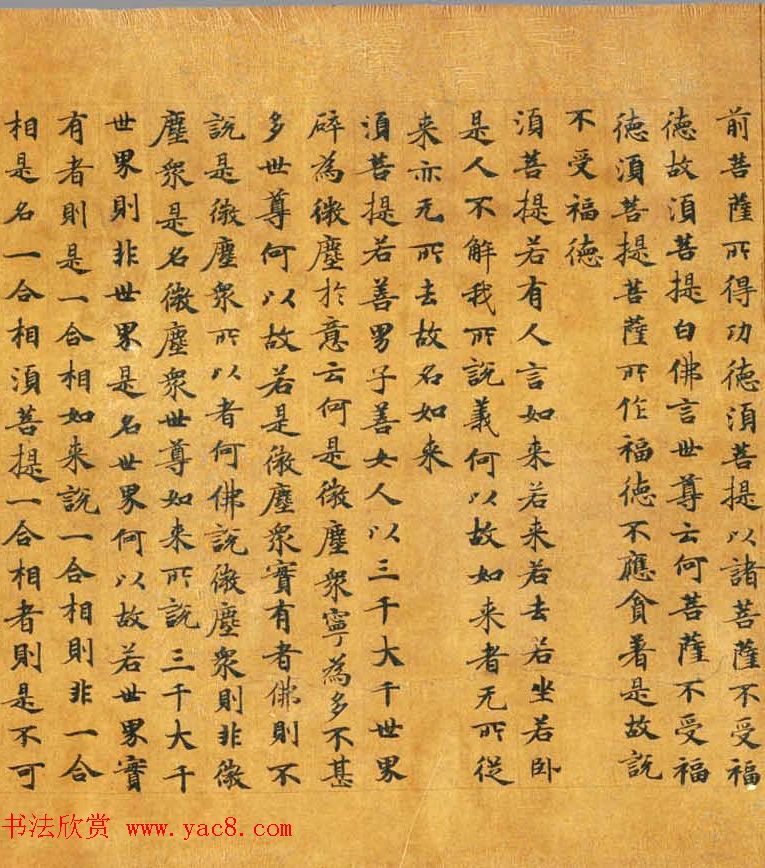 前菩薩所得功德須菩提以諸菩薩不受福
德故須菩提白佛言世尊云何菩薩不受福
德須菩提菩薩所作福德不應貪著是故說
不受福德
須菩提若有人言如來若来若去若坐若卧
是人不解我所說義何以故如来者无所從
来亦无所去故名如来
須菩提若善男子善女人以三千大千世界
碎為微塵於意云何是微塵衆寧為多不甚
多世尊何以故若是微塵衆實有者佛則不
說是微塵衆所以者何佛說微塵衆則非微
塵衆是名微塵衆世尊如来所說三千大千
世界則非世界是名世界何以故若世界實
有者則是一合相如来說一合相則非一合
相是名一合相須菩提一合相者則是不可
书法欣赏 www.yac8.com